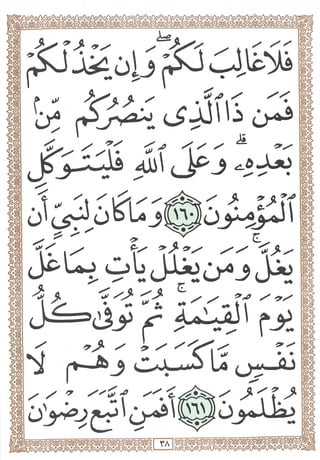 فَلَا غَالِبَ لَكُمْ ۖ وَإِن يَخْذُلْكُمْ
فَمَن ذَا الَّذِي يَنصُرُكُم مِّنۢ
بَعْدِهِۦ ۗ وَعَلَى اللَّهِ فَلْيَتَوَكَّلِ
الْمُؤْمِنُونَ ١٦٠ وَمَا كَانَ لِنَبِيٍّ أَن
يَغُلَّ ۚ وَمَن يَغْلُلْ يَأْتِ بِمَا غَلَّ
يَوْمَ الْقِيَامَةِ ۚ ثُمَّ تُوَفَّىٰ كُلُّ
نَفْسٍ مَّا كَسَبَتْ وَهُمْ لَا
يُظْلَمُونَ ١٦١ أَفَمَنِ اتَّبَعَ رِضْوَانَ
٣٨